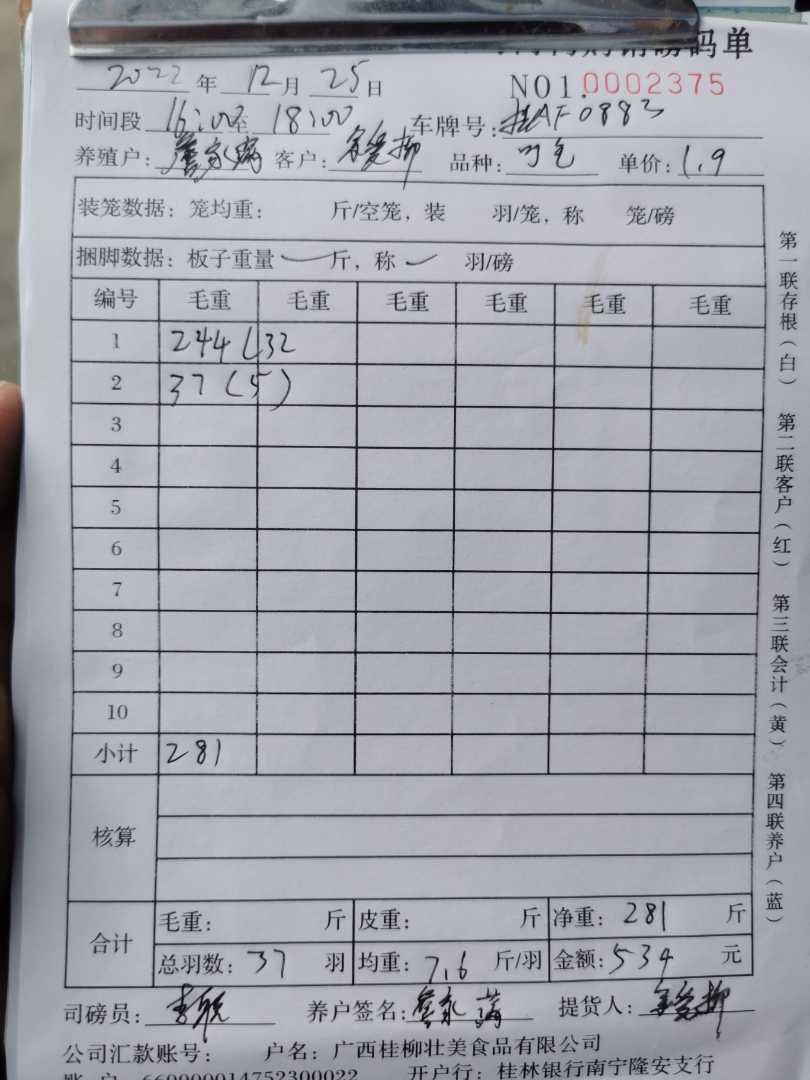 码单
2022年12月25日 NO1.0002375
时间段16:00至18:00 车牌号:桂AF0883
养殖户: 客户: 品种: 单价:1.9
装笼数据:笼均重: 斤/空笼,装 羽/笼,称 笼/磅
捆脚数据:板子重量 斤,称 羽/磅
编号 毛重 毛重 毛重 毛重 毛重 毛重
1 244(32
2 37(5)
3
4
5
6
7
8
9
10
小计 281
核算
合计 毛重: 斤 皮重: 斤 净重:281斤
总羽数:37羽 均重:7.6斤/羽 金额:534元
司磅员: 养户签名: 提货人:
公司汇款账号: 户名:广西桂柳壮美食品有限公司
账户 660000014752300022 开户行:桂林银行南宁隆安支行
第一联存根(白) 第二联客户(红) 第三联会计(黄) 第四联养户(蓝)